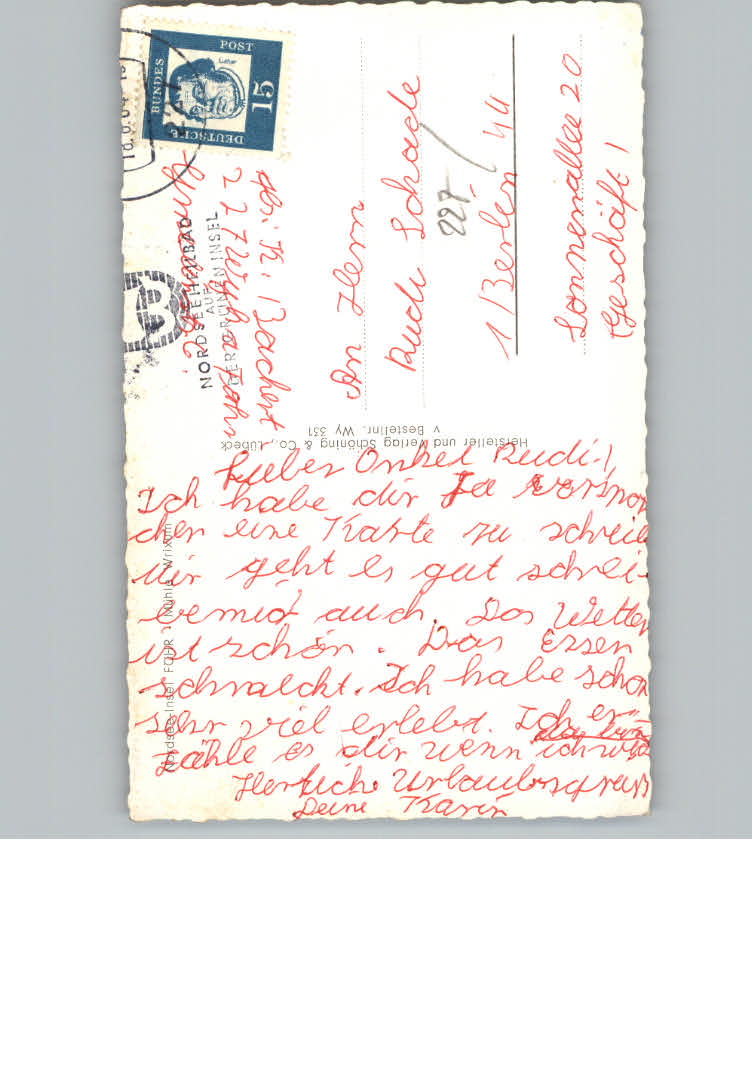 Lieber Onkel Rudi!
Ich habe dir ja versproch
chen eine Karte zu schreib
mir geht es gut schrei
be mir auch. Das Wetter
ist schön. Das Essen
schmeckt. Ich habe schon
sehr viel erlebt. Ich er-
zähle es dir wenn ich
Herzliche Urlaubsgrüss
Deine Karin
Nordsee-Insel FÖHR · Mühle Wrixum
Hersteller und Verlag Schöning & Co., Lübeck
v Bestellnr. Wy 331
DEUTSCHE BUNDES POST
Luther
15
18.6.64
227
NORDSEEHEILBAD
AUF
DER GRÜNEN INSEL
Bachert
227 Wyk a Föhr
An Hern
Rudi Schade
227
1 Berlin 44
Sonnenallee 20
Geschäft!